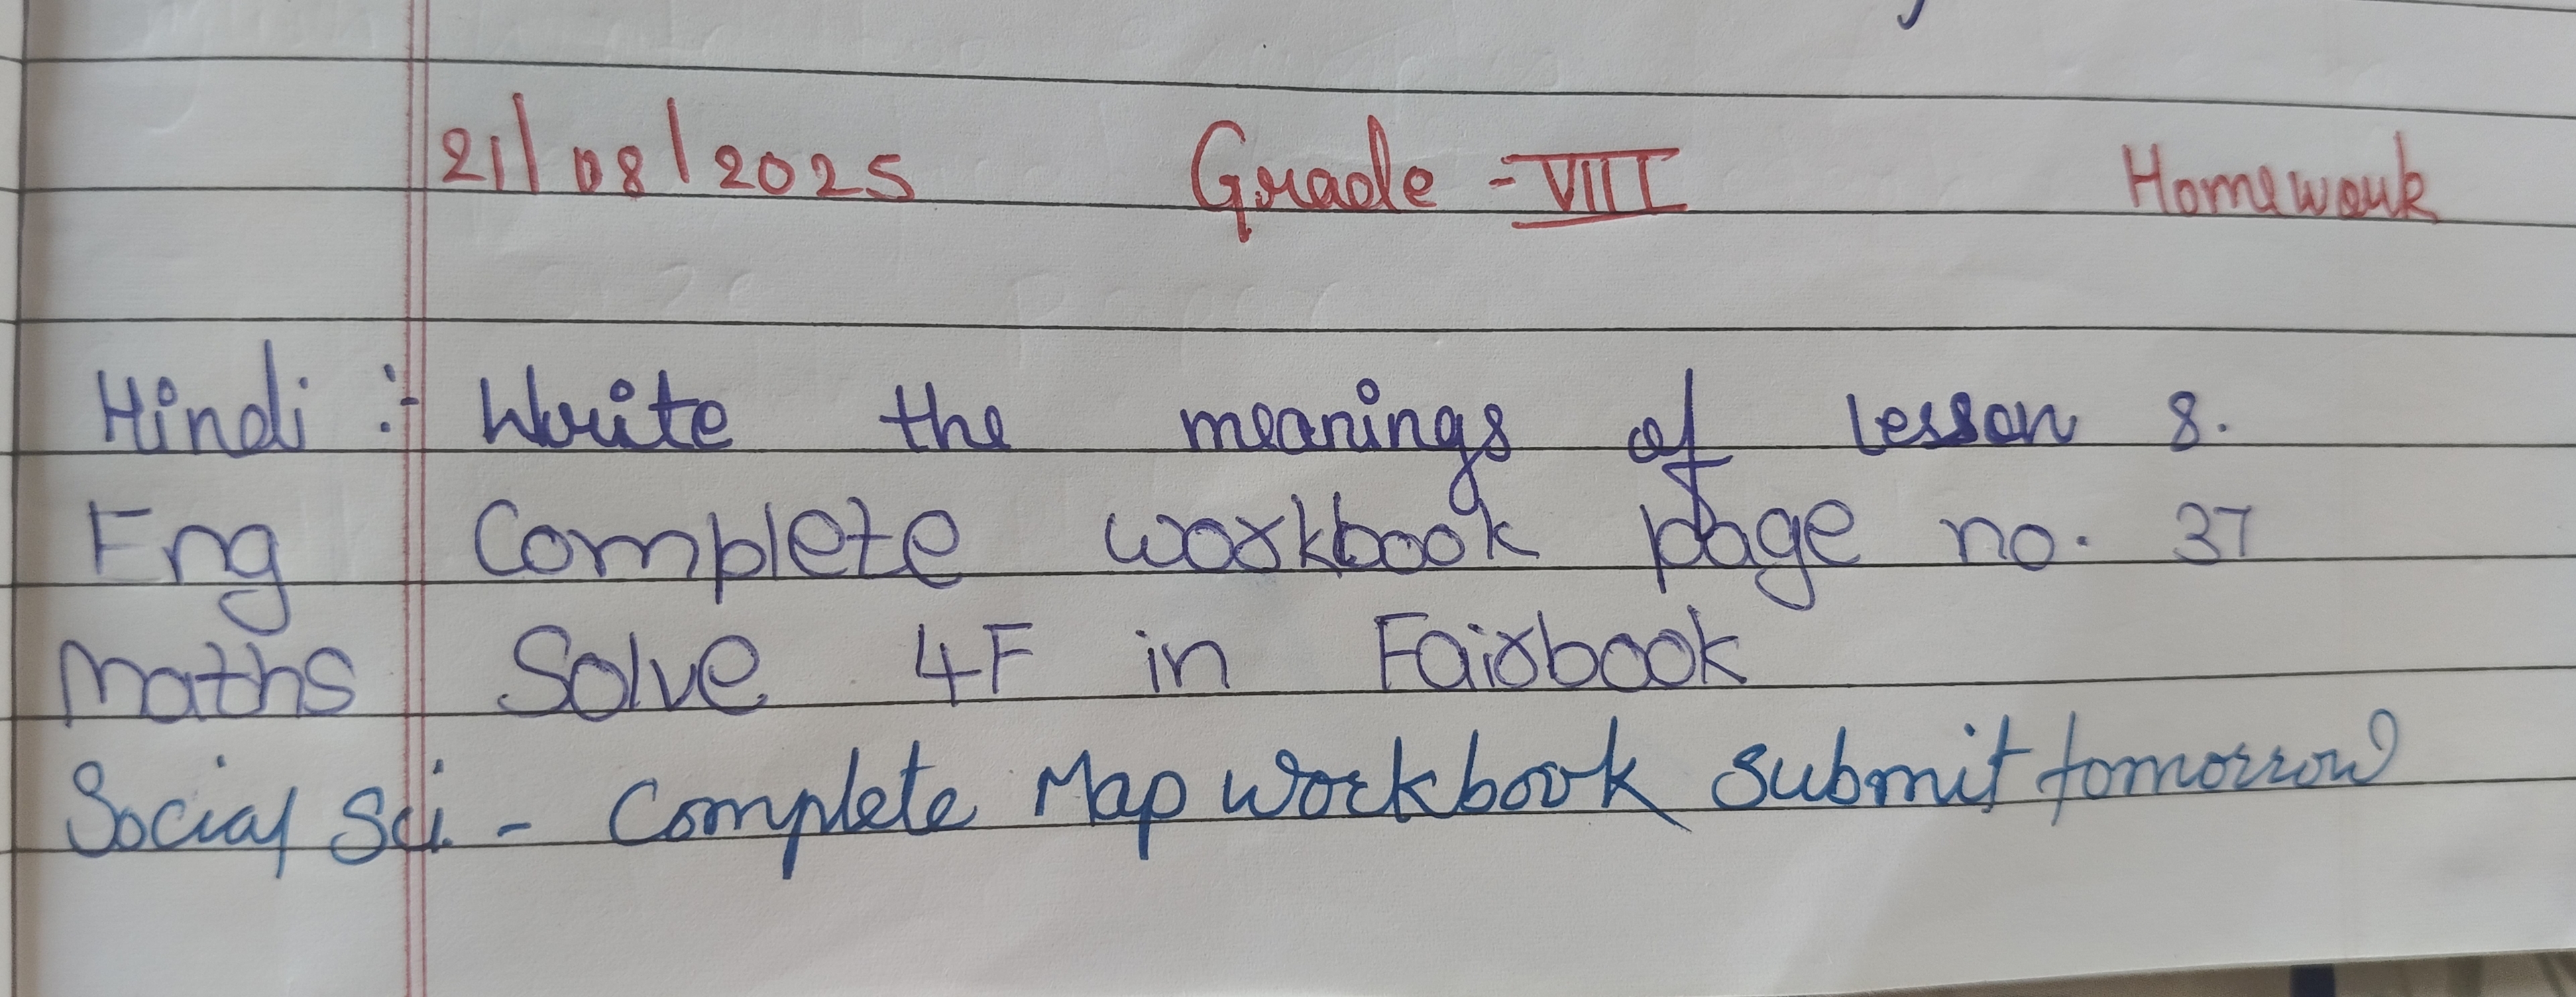 21/08/2025 Grade - VIII Homework
Hindi :- Write the meanings of lesson 8.
Eng Complete workbook page no. 37
Maths Solve 4F in Fairbook
Social Sci - Complete Map workbook submit tomorrow